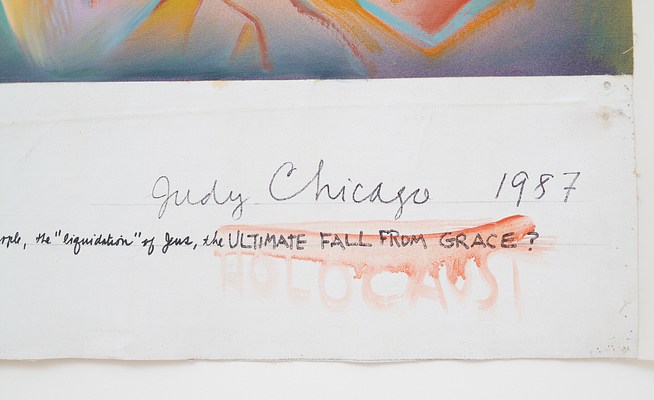 Judy Chicago 1987
the "liquidation" of Jews, the ULTIMATE FALL FROM GRACE?
HOLOCAUST